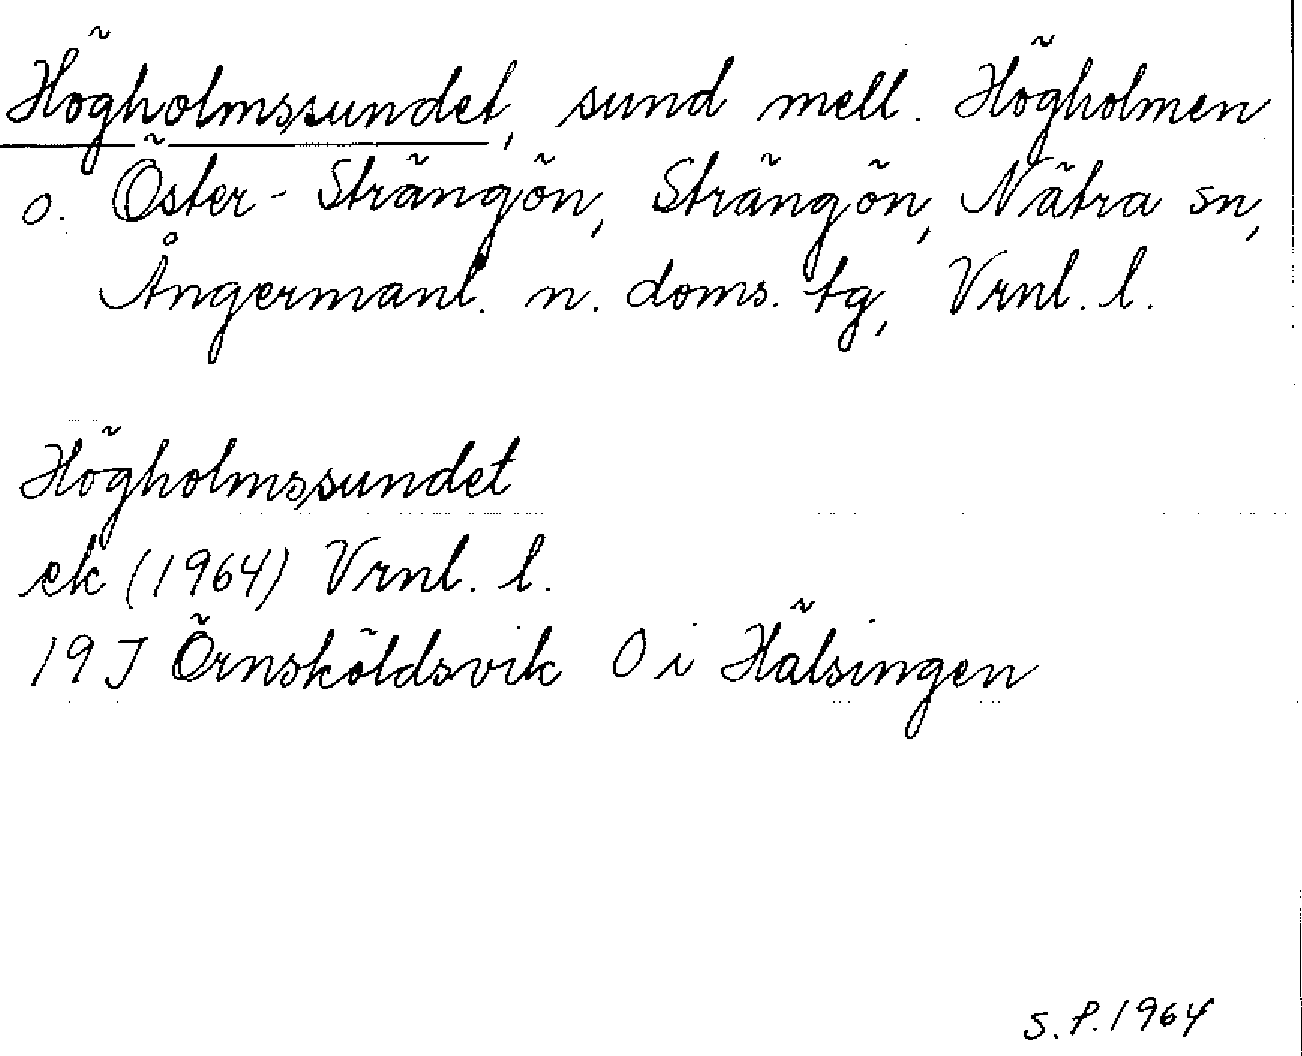 Högholmssundet, sund mell. Högholmen
o. Öster-Strängön, Strängön, Nätra sn,
Ångermanl. n. doms. tg, Vrnl. l.
Högholmssundet
ek (1964) Vrnl. l.
19J Örnsköldsvik O i Hälsingen
S.P. 1964